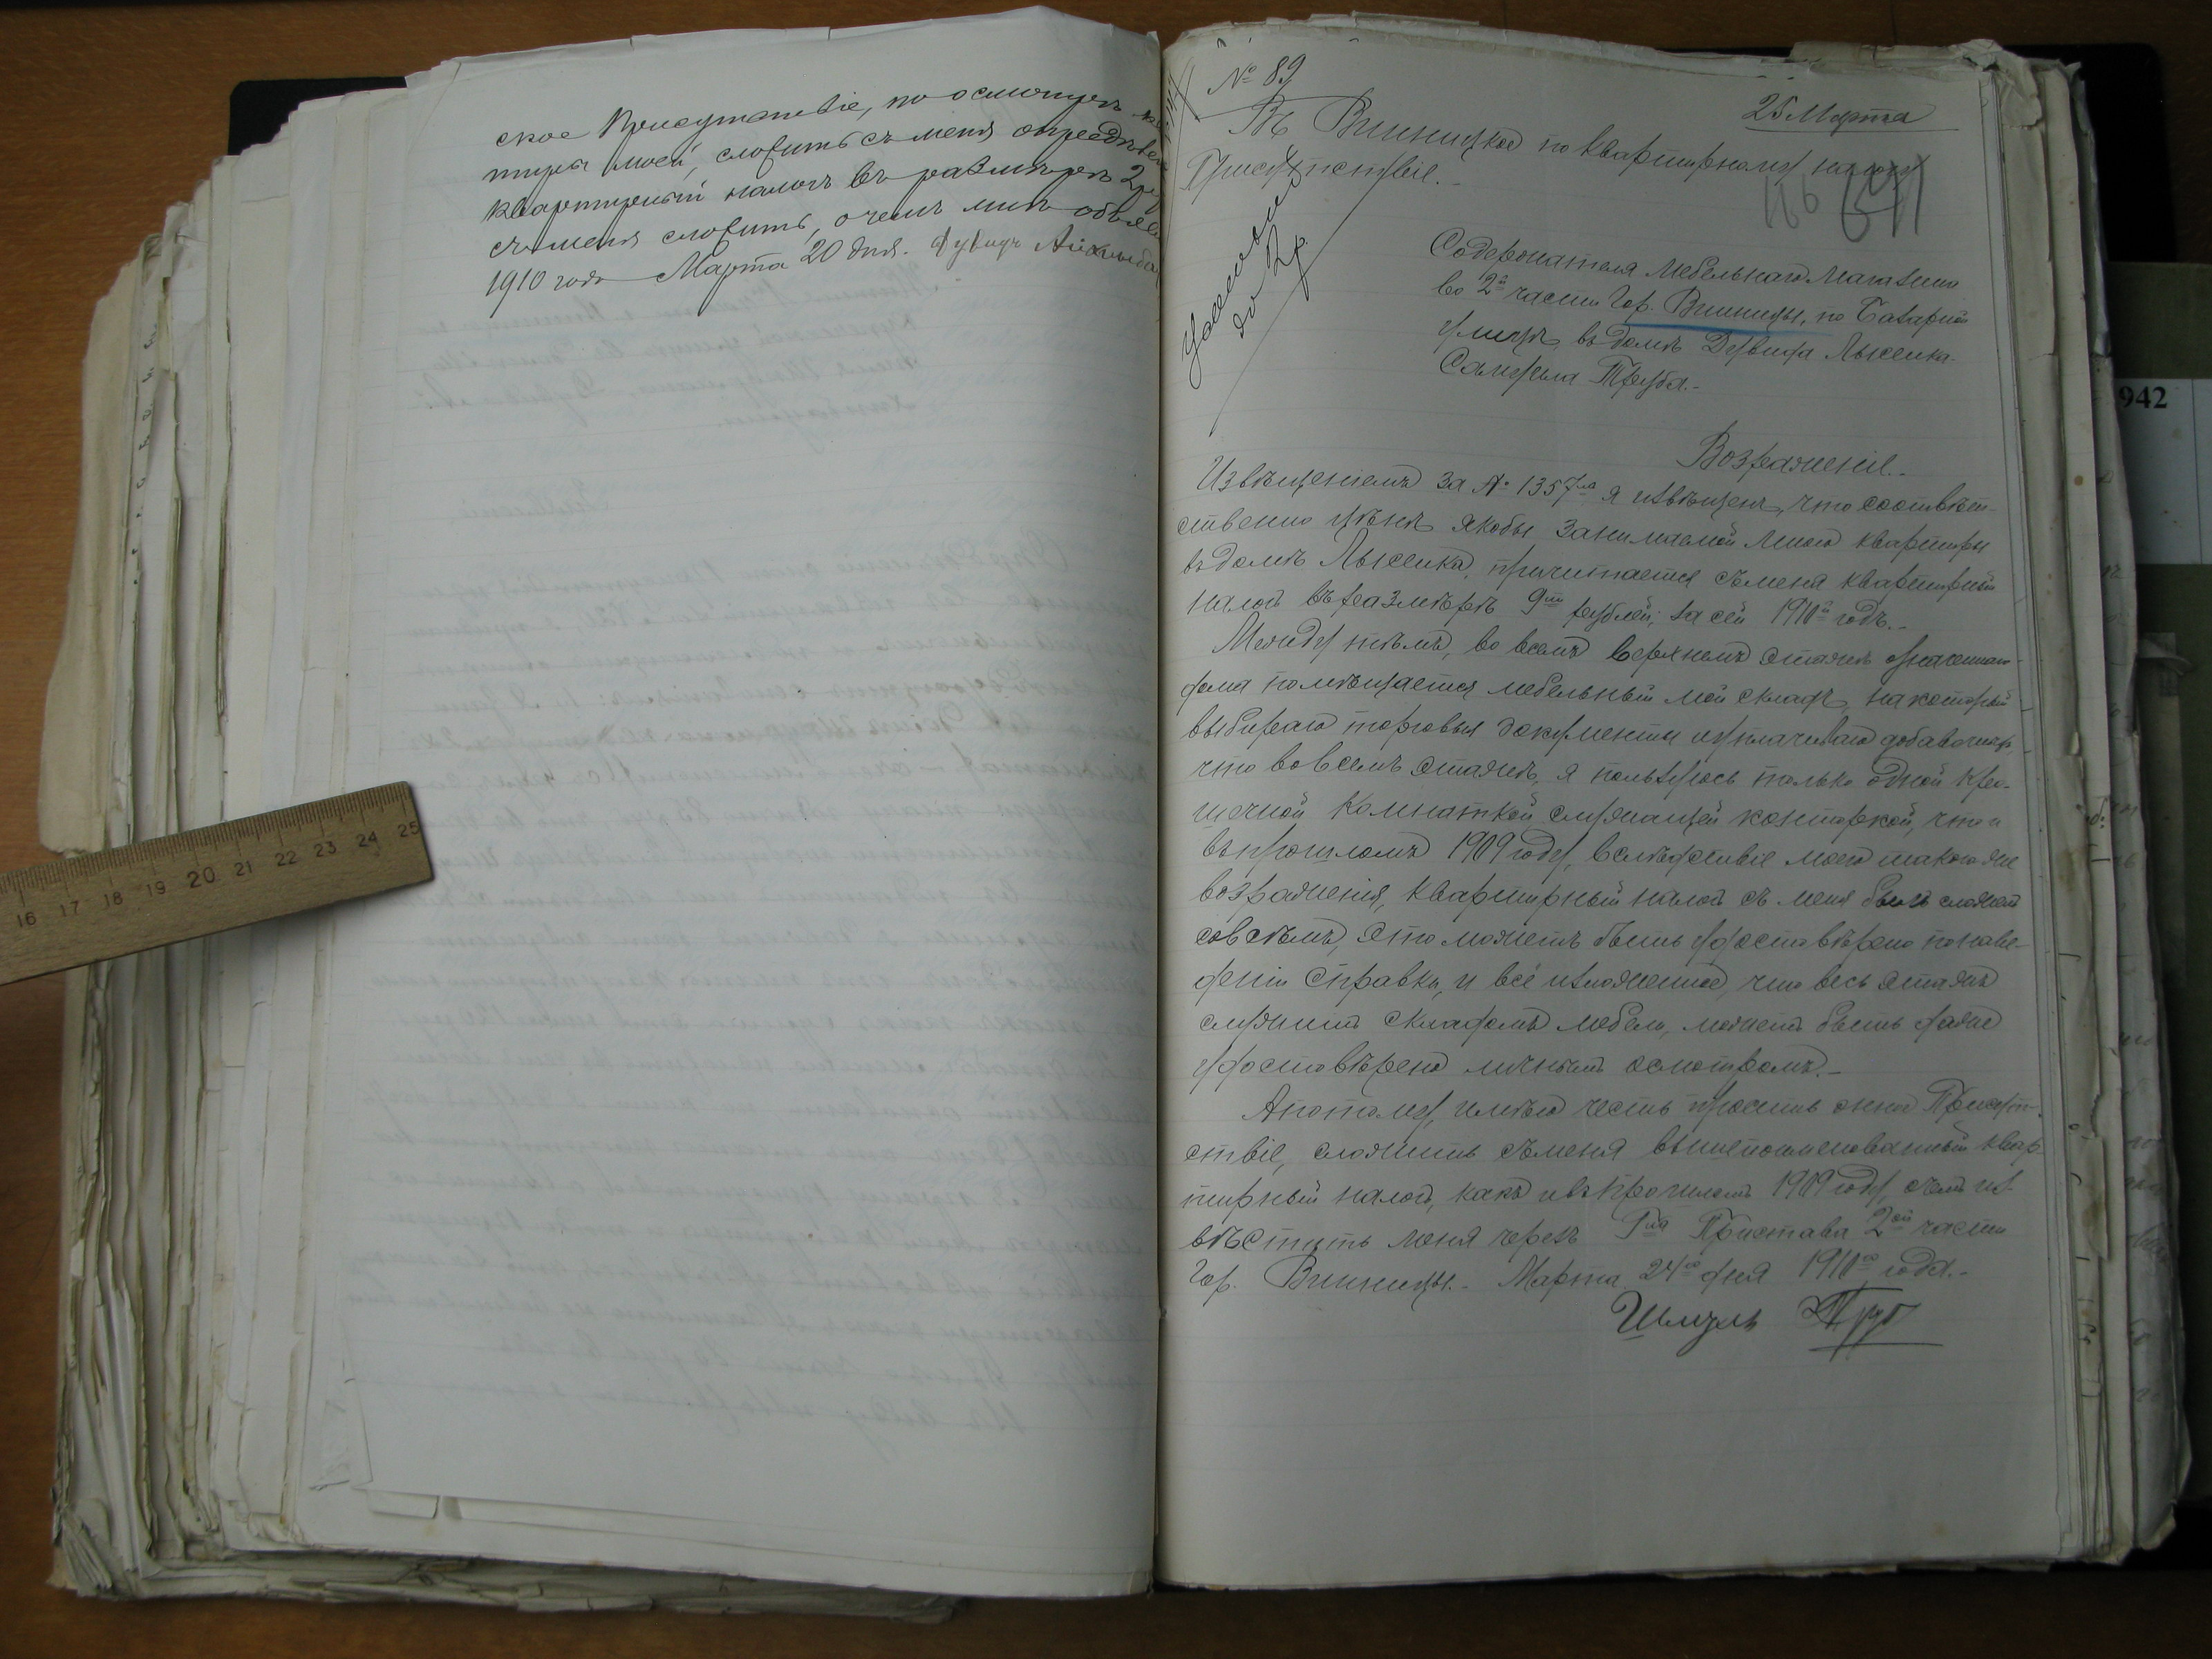 ское Присутствіе, по осмотрѣ ква
тиры моей, сложить съ меня опредѣлен
квартирный налогъ въ размѣрѣ 2 ру
съ меня сложить, о чемъ мнѣ объяв
1910 года Марта 20 дня.
№ 89
25 Марта
Въ Винницкое по квартирному налогу
Присутствіе.-
Содержателя Мебельнаго магазина
во 2й части Гор. Винницы, по Базарной
улицѣ, въ домѣ Лысенка-
Самуила Труба.-
до 2 р.
Возраженіе.-
Извѣщеніемъ за № 1357 я извѣщенъ, что соотвѣт-
ственно цѣнѣ якобы занимаемой мною квартиры
въ домѣ Лысенка, причитается съ меня квартирный
налогъ въ размѣрѣ 9ти рублей, за сей 1910й годъ.-
Между тѣмъ, во всемъ верхнемъ этажѣ означеннаго
дома помѣщается мебельный мой складъ, на который
выбираю торговыя документы и уплачиваю
что во всемъ этажѣ, я пользуюсь только одной кро-
шечной комнаткой служащей конторкой, что и
въ прошломъ 1909 году, вслѣдствіе моего такого же
возраженія, квартирный налогъ съ меня былъ сложенъ
совсѣмъ, это можетъ быть удостовѣрено по наве-
деніи справки, и всё изложенное, что весь этажъ
служитъ складомъ мебели, можетъ быть даже
удостовѣрено личнымъ осмотромъ.-
А потому, имѣю честь просить оное Присут-
ствіе, сложить съ меня вышепоименованный квар-
тирный налогъ, какъ и въ прошломъ 1909 году, о чемъ из-
вѣстить меня черезъ Гна Пристава 2ой части
Гор. Винницы.- Марта 24го дня 1910го года.-
Шмуль Трубъ